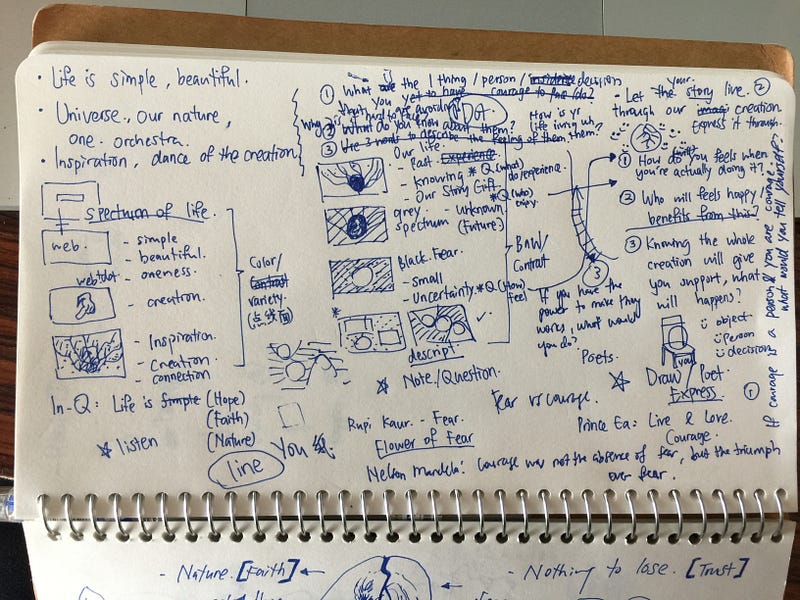 · Life is simple, beautiful.
· Universe, our nature,
one orchestra.
· Inspiration, dance of the creation
spectrum of life.
web.
- simple
- beautiful.
web+dot - oneness.
- creation.
- Inspiration.
- Creation
- connection
Color/
Contrast
variety.
(点线面)
In-Q: Life is simple (Hope)
(Faith)
(Nature)
☆ listen
line
You
① What are the 1 thing / person / decision
that you yet to have courage to face/do?
② What do you know about them?
③ Use 3 words to describe the feeling of them
Our life.
- Past Experience
- Knowing *Q (what)
do/experience.
- Our Story Gift
*Q (who)
enjoy
grey - unknown
spectrum (Future)
Black. Fear.
- small
- Uncertainty *Q (How)
feel
B&W/
Contrast
descript.
☆ Note./Question.
Rupi Kaur. - Fear.
Flower of Fear
Nelson Mandela: Courage was not the absence of fear, but the triumph
over fear.
③
If you have the
power to make they
works, what would
you do?
Poets.
Fear vs courage.
- Let the your story live. ②
through our creation
Express it through.
① How do you feels when
you're actually doing it?
② Who will feels happy,
benefits from this?
③ Knowing the whole
creation will give
you support, what
will happens?
object.
person
decision
you
☆ Draw / Poet
Express
①
Prince Ea: Live & Love.
Courage.
If courage is a person & you are courage,
what would you tell yourself?
- Nature. [Faith] ←
← - Nothing to lose. [Trust]